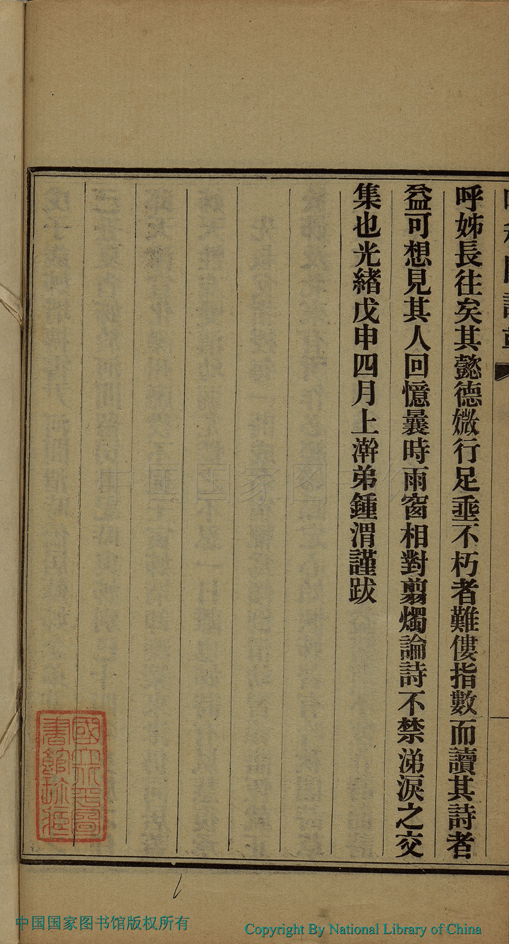 呼姊長往矣其懿德媺行足垂不朽者難僂指數而讀其詩者
益可想見其人回憶曩時雨窗相對翦燭論詩不禁涕淚之交
集也光緒戊申四月上澣弟鍾渭謹跋
中国国家图书馆版权所有
Copyright By National Library of China